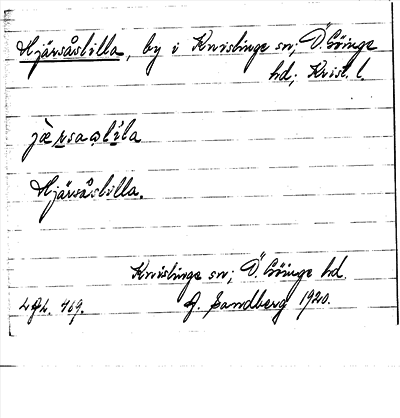 Hjärsåslilla, by i Knislinge sn; Ö. Göinge
hd; Krist. l.
Hjärsåslilla.
Knislinge sn; Ö. Göinge hd.
G. Sandberg 1920.